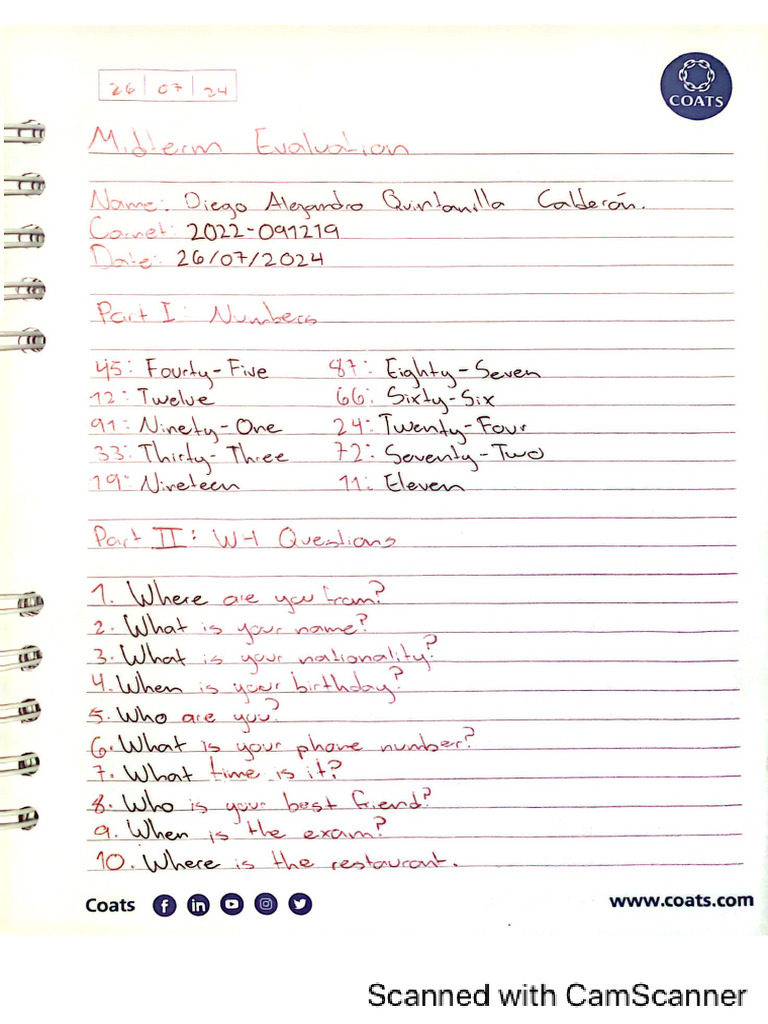 26 | 07 | 24
COATS
Midterm Evaluation
Name: Diego Alejandro Quintanilla Calderón.
Carnet: 2022-091219
Date: 26/07/2024
Part I: Numbers
45: Fourty-Five 87: Eighty-Seven
12: Twelve 66: Sixty-Six
91: Ninety-One 24: Twenty-Four
33: Thirty-Three 72: Seventy-Two
19: Nineteen 11: Eleven
Part II: WH Questions
1. Where are you from?
2. What is your name?
3. What is your nationality?
4. When is your birthday?
5. Who are you?
6. What is your phone number?
7. What time is it?
8. Who is your best friend?
9. When is the exam?
10. Where is the restaurant.
Coats www.coats.com
Scanned with CamScanner